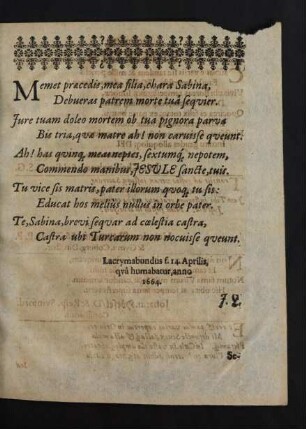 Memet præcedis, mea filia, chara Sabina,
Debueras patrem morte tuâ seqvier.
Jure tuam doleo mortem ob tua pignora parva
Bis tria, qvæ matre ah! non caruisse qveunt:
Ah! has qvinq, meas neptes, sextumq, nepotem,
Commendo manibus, JESULE sancte, tuis.
Tu vice sis matris, pater illorum qvoq, tu sis:
Educat hos melius nullus in orbe pater.
Te, Sabina, brevi seqvar ad cœlestia castra,
Castra ubi Turcarum non nocuisse qveunt.
Lacrymabundus f. 14. Aprilis,
qvâ humabatur, anno
1664.
Se-